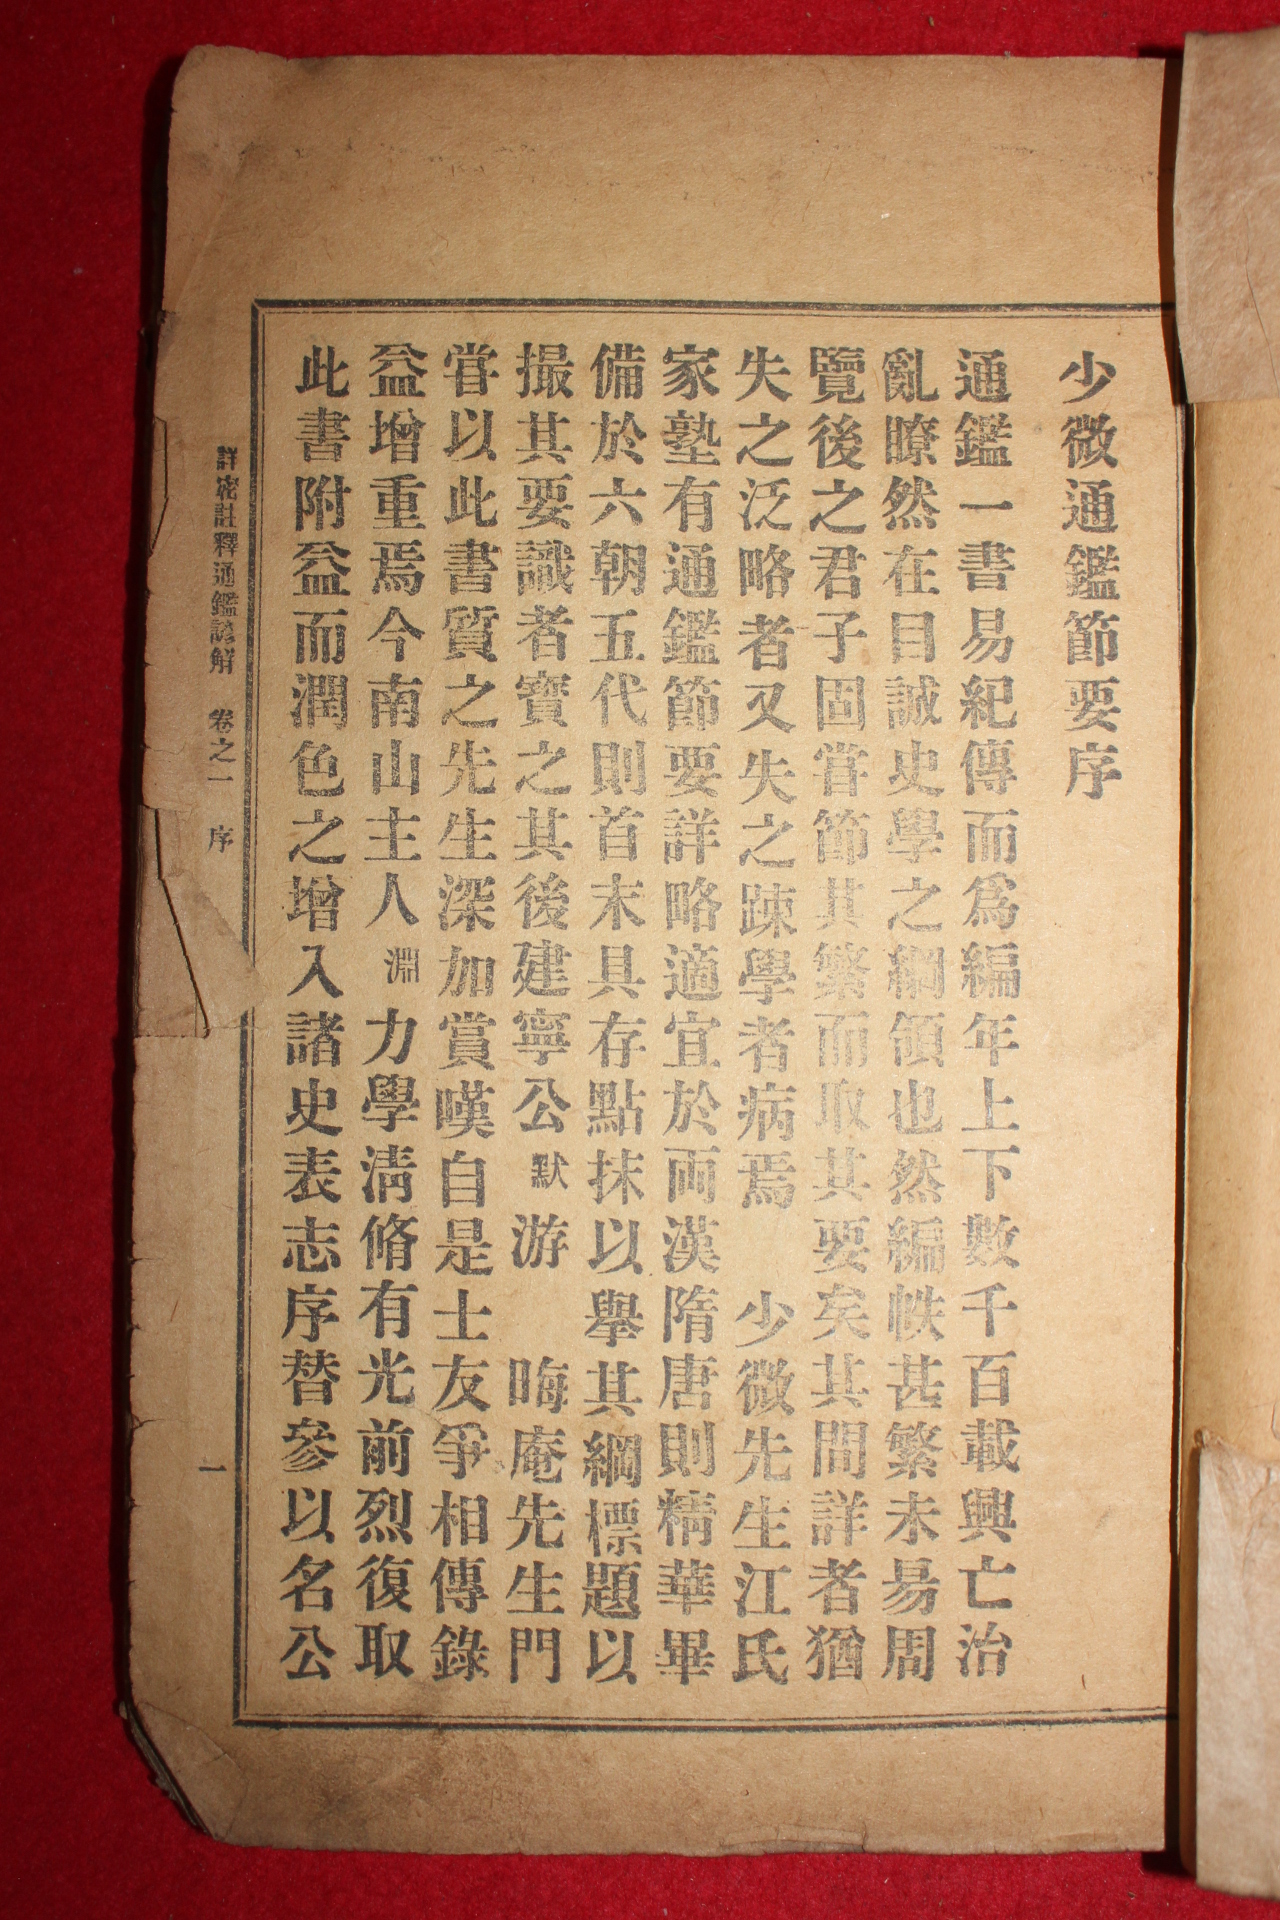 少微通鑑節要序
通鑑一書易紀傳而爲編年上下數千百載興亡治
亂瞭然在目誠史學之綱領也然編帙甚繁未易周
覽後之君子固甞節其繁而取其要矣其間詳者猶
失之泛略者又失之踈學者病焉 少微先生江氏
家塾有通鑑節要詳略適宜於両漢隋唐則精華畢
備於六朝五代則首末具存點抹以擧其綱標題以
撮其要識者寶之其後建寧公默游 晦庵先生門
甞以此書質之先生深加賞嘆自是士友爭相傳錄
益增重焉今南山主人淵力學淸脩有光前烈復取
此書附益而潤色之增入諸史表志序替參以名公
詳密註釋通鑑諺解 卷之一 序 一